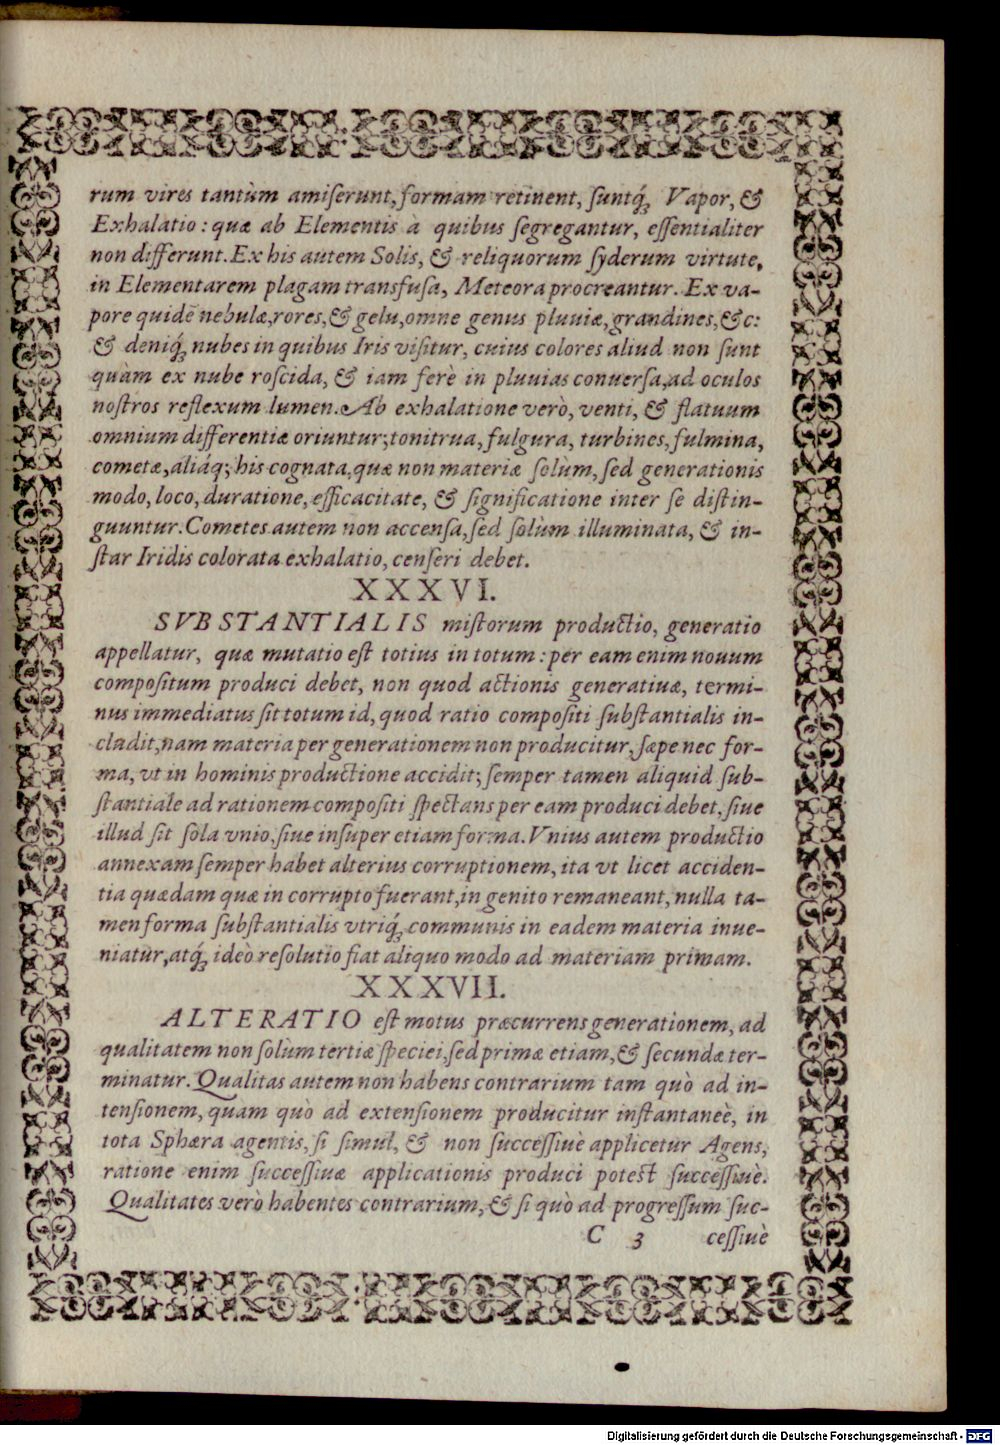 rum vires tantùm amiſerunt, formam retinent, ſuntq́ꝫ Vapor, &
Exhalatio: quæ ab Elementis à quibus ſegregantur, eſſentialiter
non differunt. Ex his autem Solis, & reliquorum ſyderum virtute,
in Elementarem plagam transfuſa, Meteora procreantur. Ex va-
pore quidē nebulæ, rores, & gelu, omne genus pluuiæ, grandines, &c:
& deniq́ꝫ nubes in quibus Iris viſitur, cuius colores aliud non ſunt
quàm ex nube roſcida, & iam ferè in pluuias conuerſa, ad oculos
noſtros reflexum lumen. Ab exhalatione verò, venti, & flatuum
omnium differentiæ oriuntur; tonitrua, fulgura, turbines, fulmina,
cometæ, aliáq; his cognata, quæ non materiæ ſolùm, ſed generationis
modo, loco, duratione, efficacitate, & ſignificatione inter ſe diſtin-
guuntur. Cometes autem non accenſa, ſed ſolùm illuminata, & in-
ſtar Iridis colorata exhalatio, cenſeri debet.
XXXVI.
SVBSTANTIALIS miſtorum productio, generatio
appellatur, quæ mutatio eſt totius in totum: per eam enim nouum
compoſitum produci debet, non quod actionis generatiuæ, termi-
nus immediatus ſit totum id, quod ratio compoſiti ſubſtantialis in-
cludit, nam materia per generationem non producitur, ſæpe nec for-
ma, vt in hominis productione accidit; ſemper tamen aliquid ſub-
ſtantiale ad rationem compoſiti ſpectans per eam produci debet, ſiue
illud ſit ſola vnio, ſiue inſuper etiam forma. Vnius autem productio
annexam ſemper habet alterius corruptionem, ita vt licet acciden-
tia quædam quæ in corrupto fuerant, in genito remaneant, nulla ta-
men forma ſubſtantialis vtriq́ꝫ communis in eadem materia inue-
niatur, atq́ꝫ ideò reſolutio fiat aliquo modo ad materiam primam.
XXXVII.
ALTERATIO eſt motus præcurrens generationem, ad
qualitatem non ſolùm tertiæ ſpeciei, ſed primæ etiam, & ſecundæ ter-
minatur. Qualitas autem non habens contrarium tam quò ad in-
tenſionem, quam quò ad extenſionem producitur inſtantaneè, in
tota Sphæra agentis, ſi ſimul, & non ſucceſſiuè applicetur Agens,
ratione enim ſucceſſiuæ applicationis produci poteſt ſucceſſiuè.
Qualitates verò habentes contrarium, & ſi quò ad progreſſum ſuc-
C 3 ceſſiuè
Digitalisierung gefördert durch die Deutsche Forschungsgemeinschaft - DFG